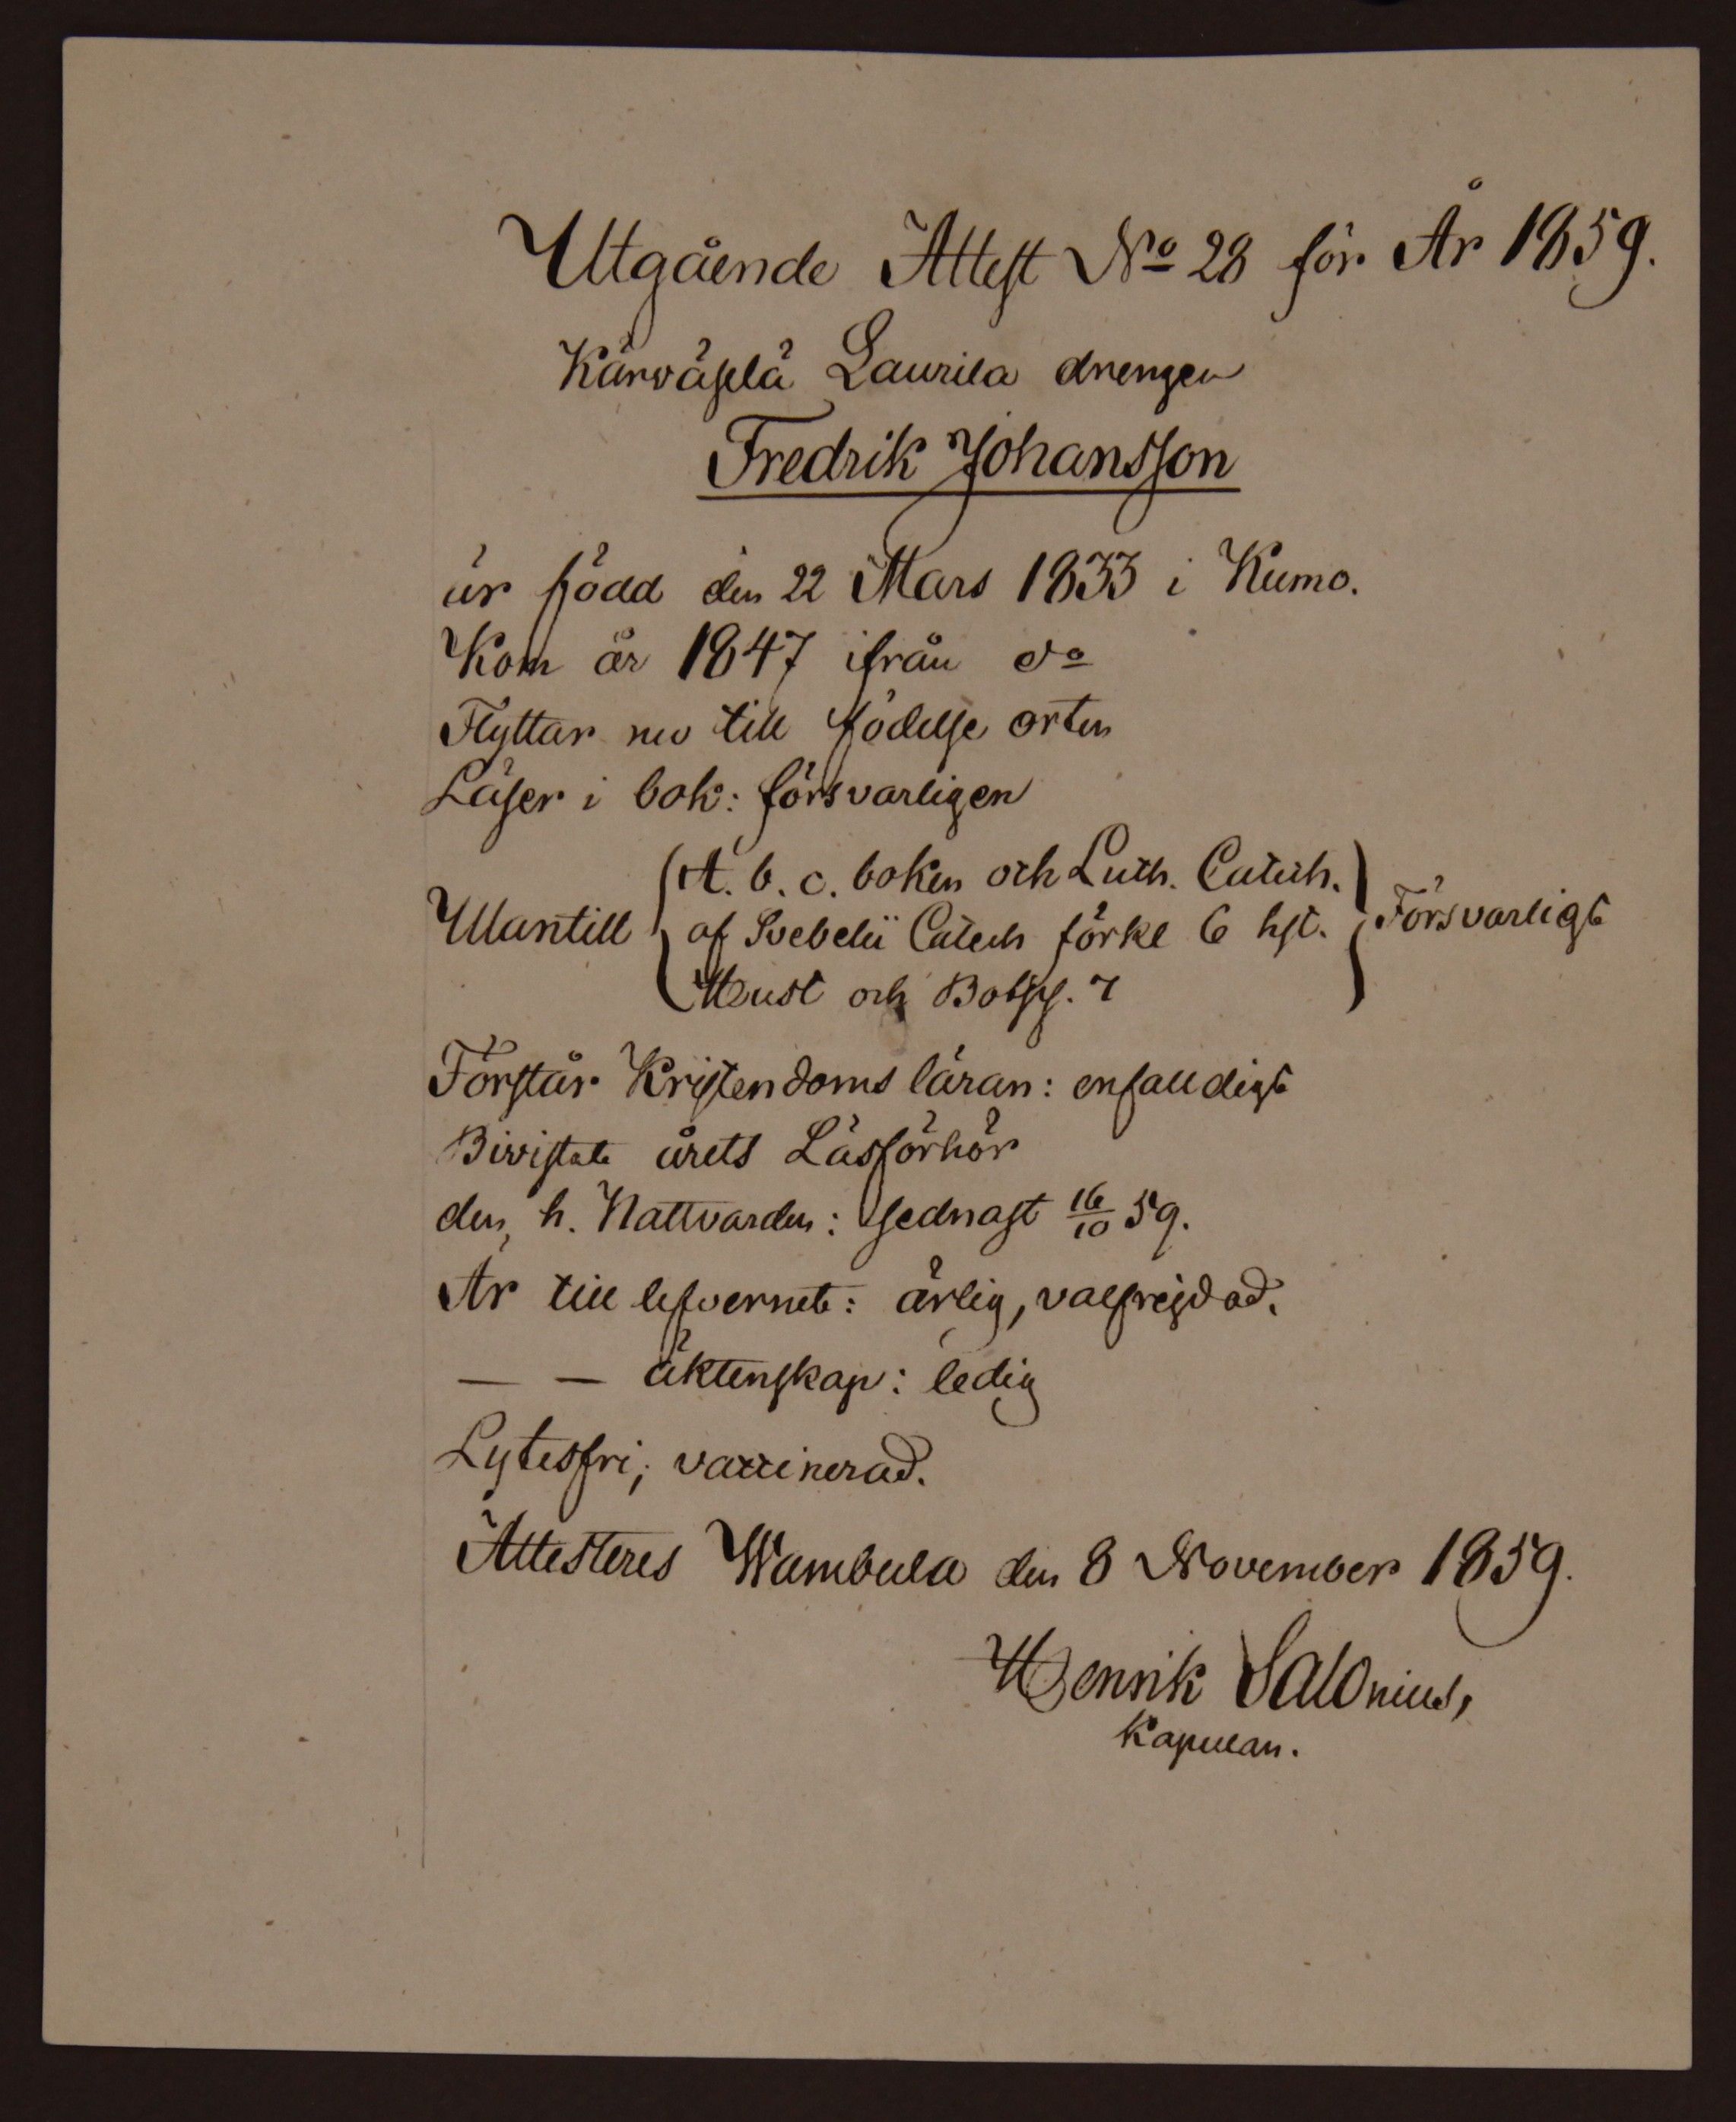 Utgående Attest No 28 för År 1859.
Kärväselä Laurila drengen
Fredrik Johansson
är född den 22 Mars 1833 i Kumo.
Kom år 1847 ifrån do
Flyttar nu till födelse orten
Läser i bok: försvarligen
Utantill { A. b. c. boken och Luth. Catech. } Försvarligt
af Svebelii Catech förkl 6 hst.
Hust och Botps. 7
Förstår Kristendoms läran: enfaldigt
Bivistat årets Läsförhör
den h. Nattvarden: sednast 16/10 59.
Är till lefvernet: ärlig, välfrejdad.
— — äktenskap: ledig
Lytesfri; vaccinerad.
Attesteres Wambula den 8 November 1859.
Henrik Salonius,
Kapellan.